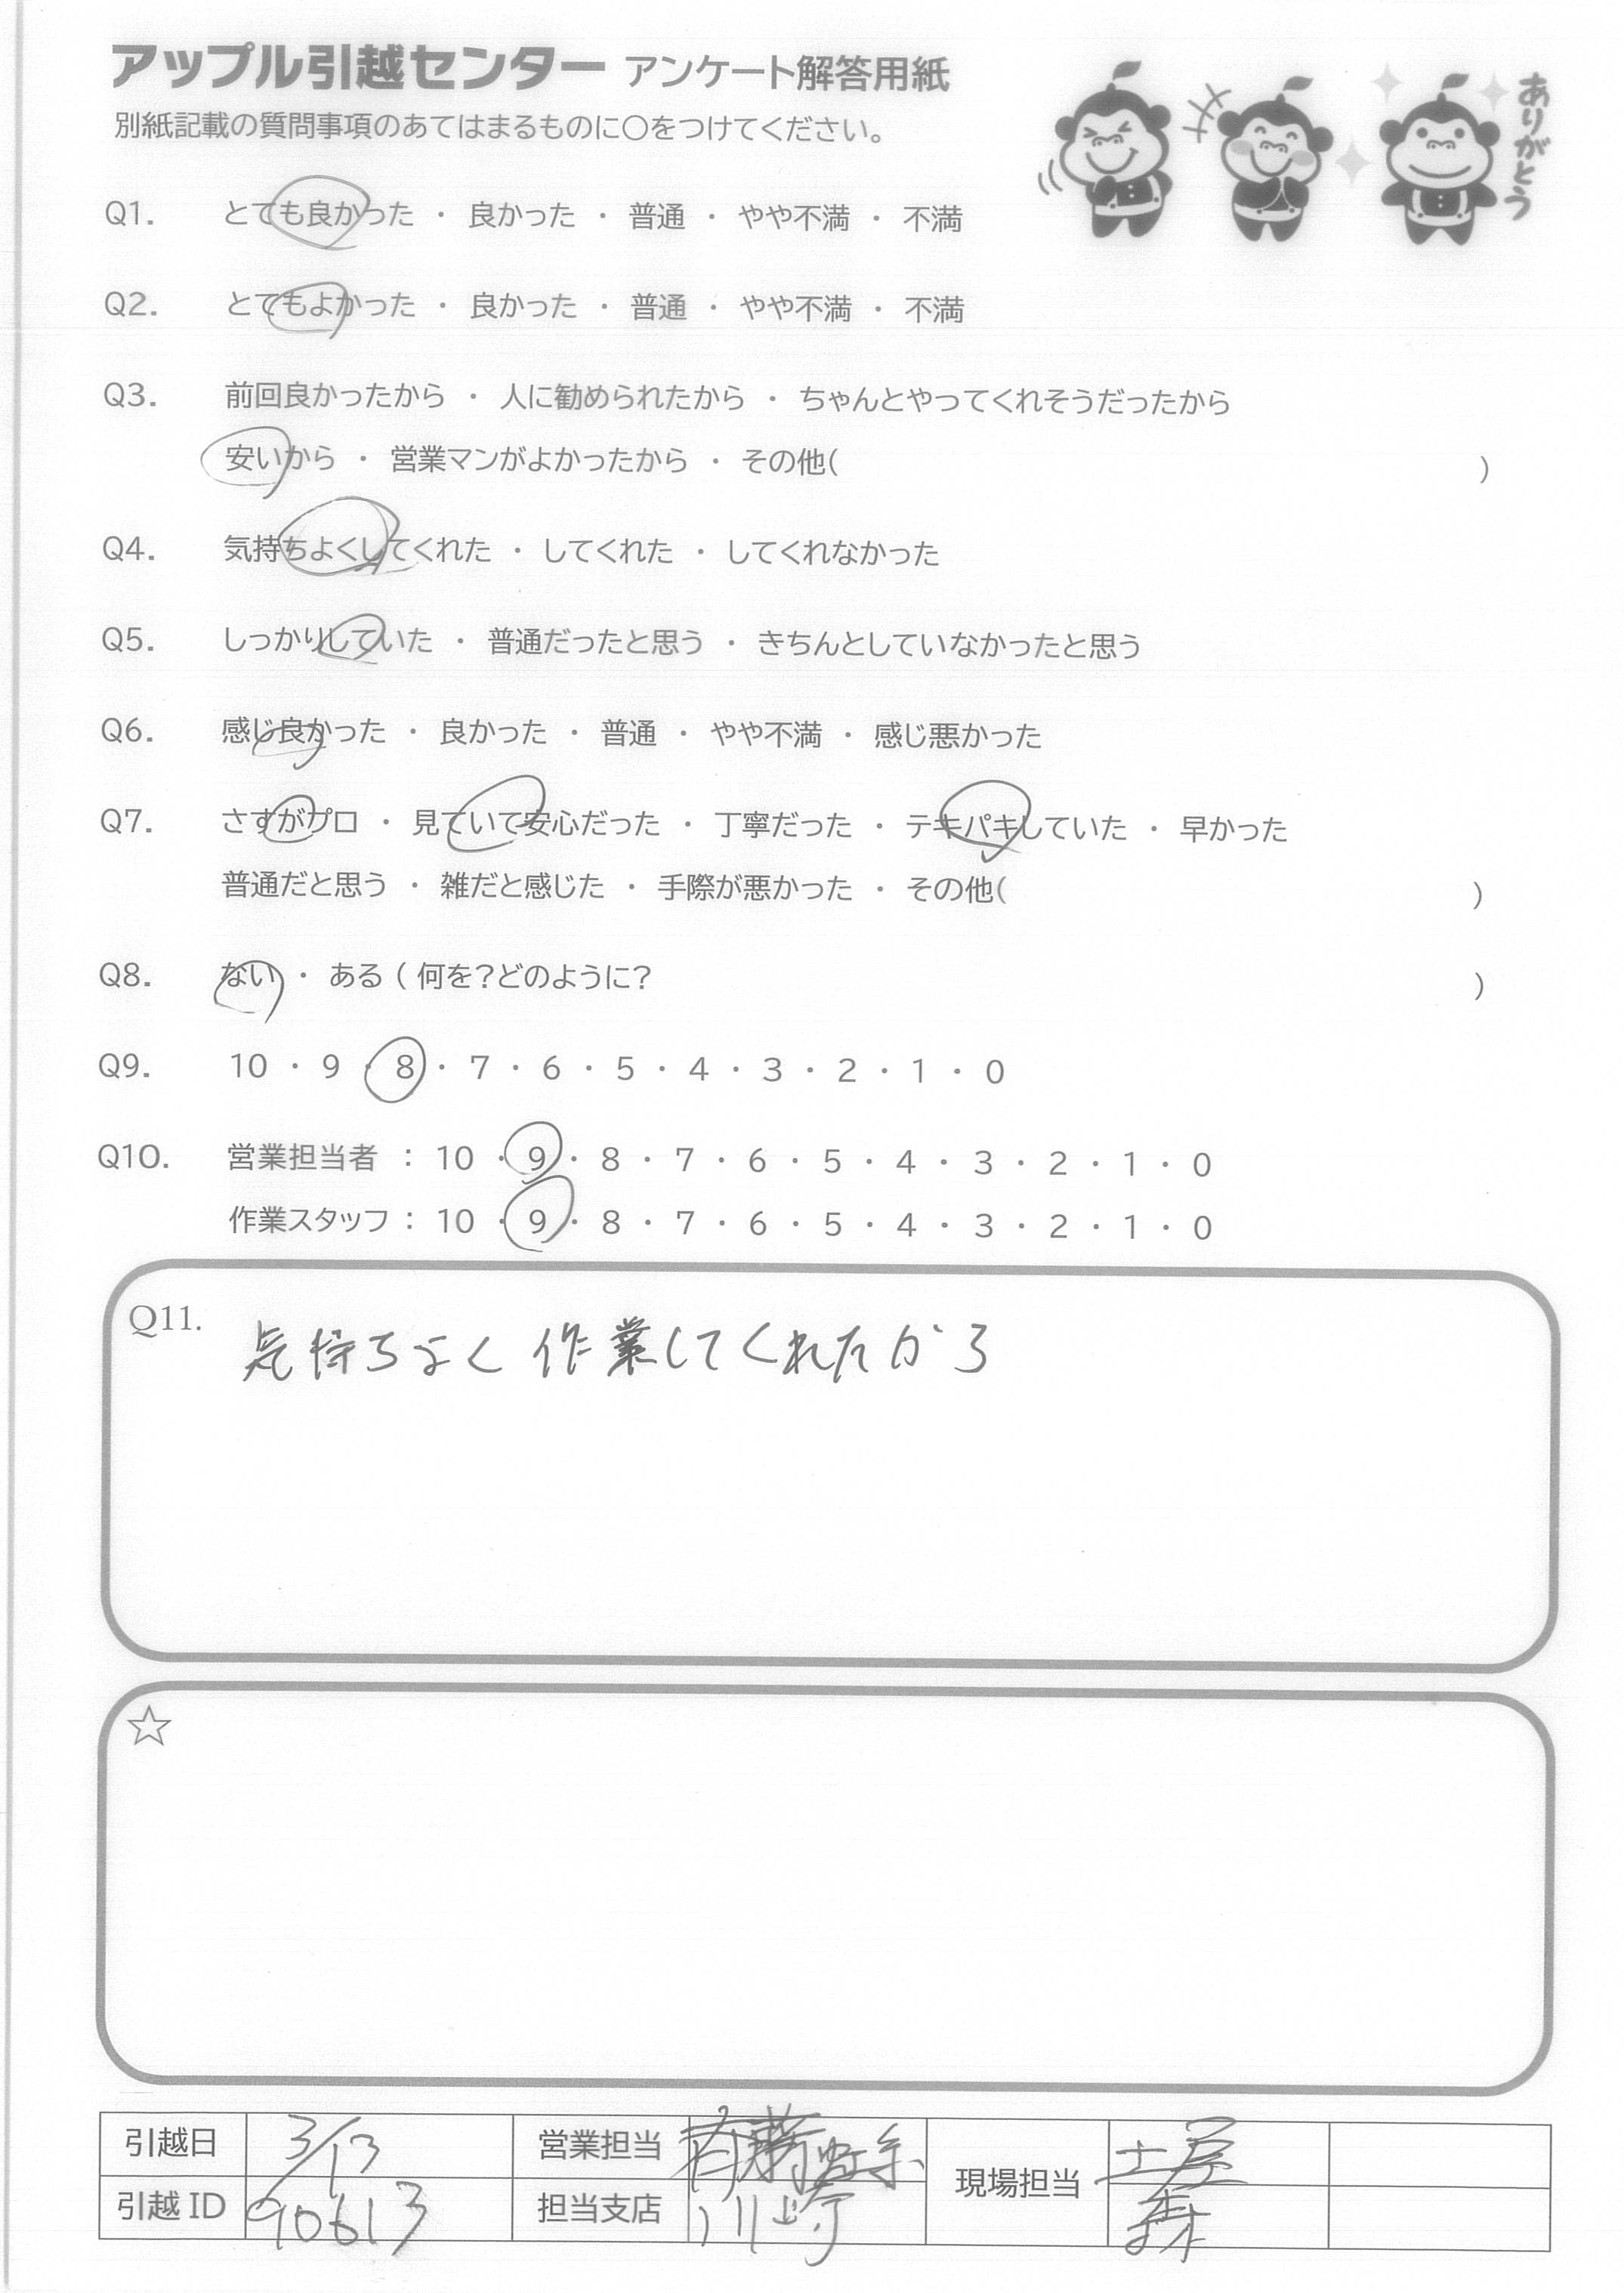 アップル引越センター アンケート解答用紙
ありがとう
別紙記載の質問事項のあてはまるものに○をつけてください。
Q1. とても良かった ・ 良かった ・ 普通 ・ やや不満 ・ 不満
Q2. とてもよかった ・ 良かった ・ 普通 ・ やや不満 ・ 不満
Q3. 前回良かったから ・ 人に勧められたから ・ ちゃんとやってくれそうだったから
安いから ・ 営業マンがよかったから ・ その他( )
Q4. 気持ちよくしてくれた ・ してくれた ・ してくれなかった
Q5. しっかりしていた ・ 普通だったと思う ・ きちんとしていなかったと思う
Q6. 感じ良かった ・ 良かった ・ 普通 ・ やや不満 ・ 感じ悪かった
Q7. さすがプロ ・ 見ていて安心だった ・ 丁寧だった ・ テキパキしていた ・ 早かった
普通だと思う ・ 雑だと感じた ・ 手際が悪かった ・ その他( )
Q8. ない ・ ある ( 何を?どのように? )
Q9. 10 ・ 9 ・ 8 ・ 7 ・ 6 ・ 5 ・ 4 ・ 3 ・ 2 ・ 1 ・ 0
Q10. 営業担当者 : 10 ・ 9 ・ 8 ・ 7 ・ 6 ・ 5 ・ 4 ・ 3 ・ 2 ・ 1 ・ 0
作業スタッフ : 10 ・ 9 ・ 8 ・ 7 ・ 6 ・ 5 ・ 4 ・ 3 ・ 2 ・ 1 ・ 0
Q11. 気持ちよく作業してくれたから
☆
引越日 3/13 営業担当 現場担当 土屋
引越ID 90613 担当支店 川崎 森